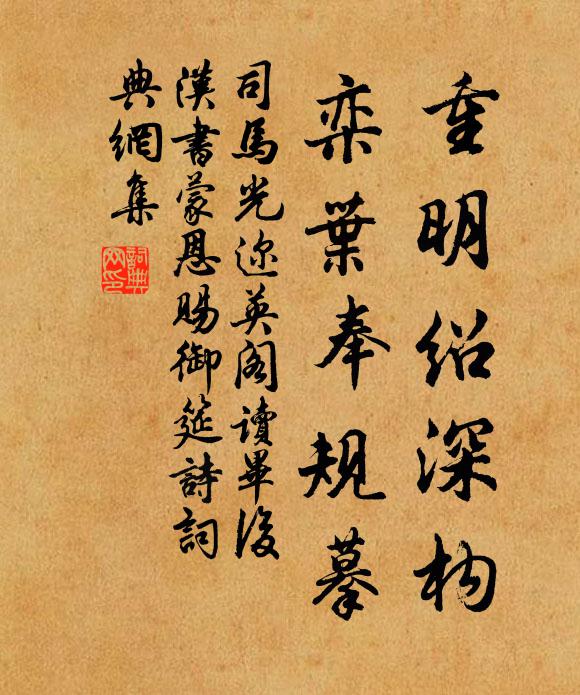 重明紹深構
奕葉奉規摹
司馬光迩英阁讀畢後
漢書蒙恩賜御筵詩詞
典網集
詞典
网印